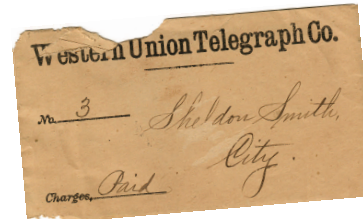 Western Union Telegraph Co.
No. 3
Sheldon Smith,
City.
Charges, Paid